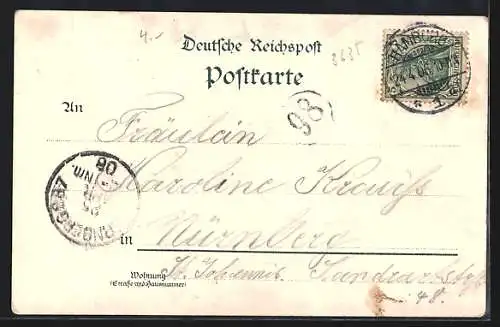 4.-
Deutsche Reichspost
3635
Postkarte
98
An
Fräulein
Karoline Krauß
in Nürnberg
Wohnung
(Straße und Hausnummer)
St. Johannis Sandrartstr.
48.